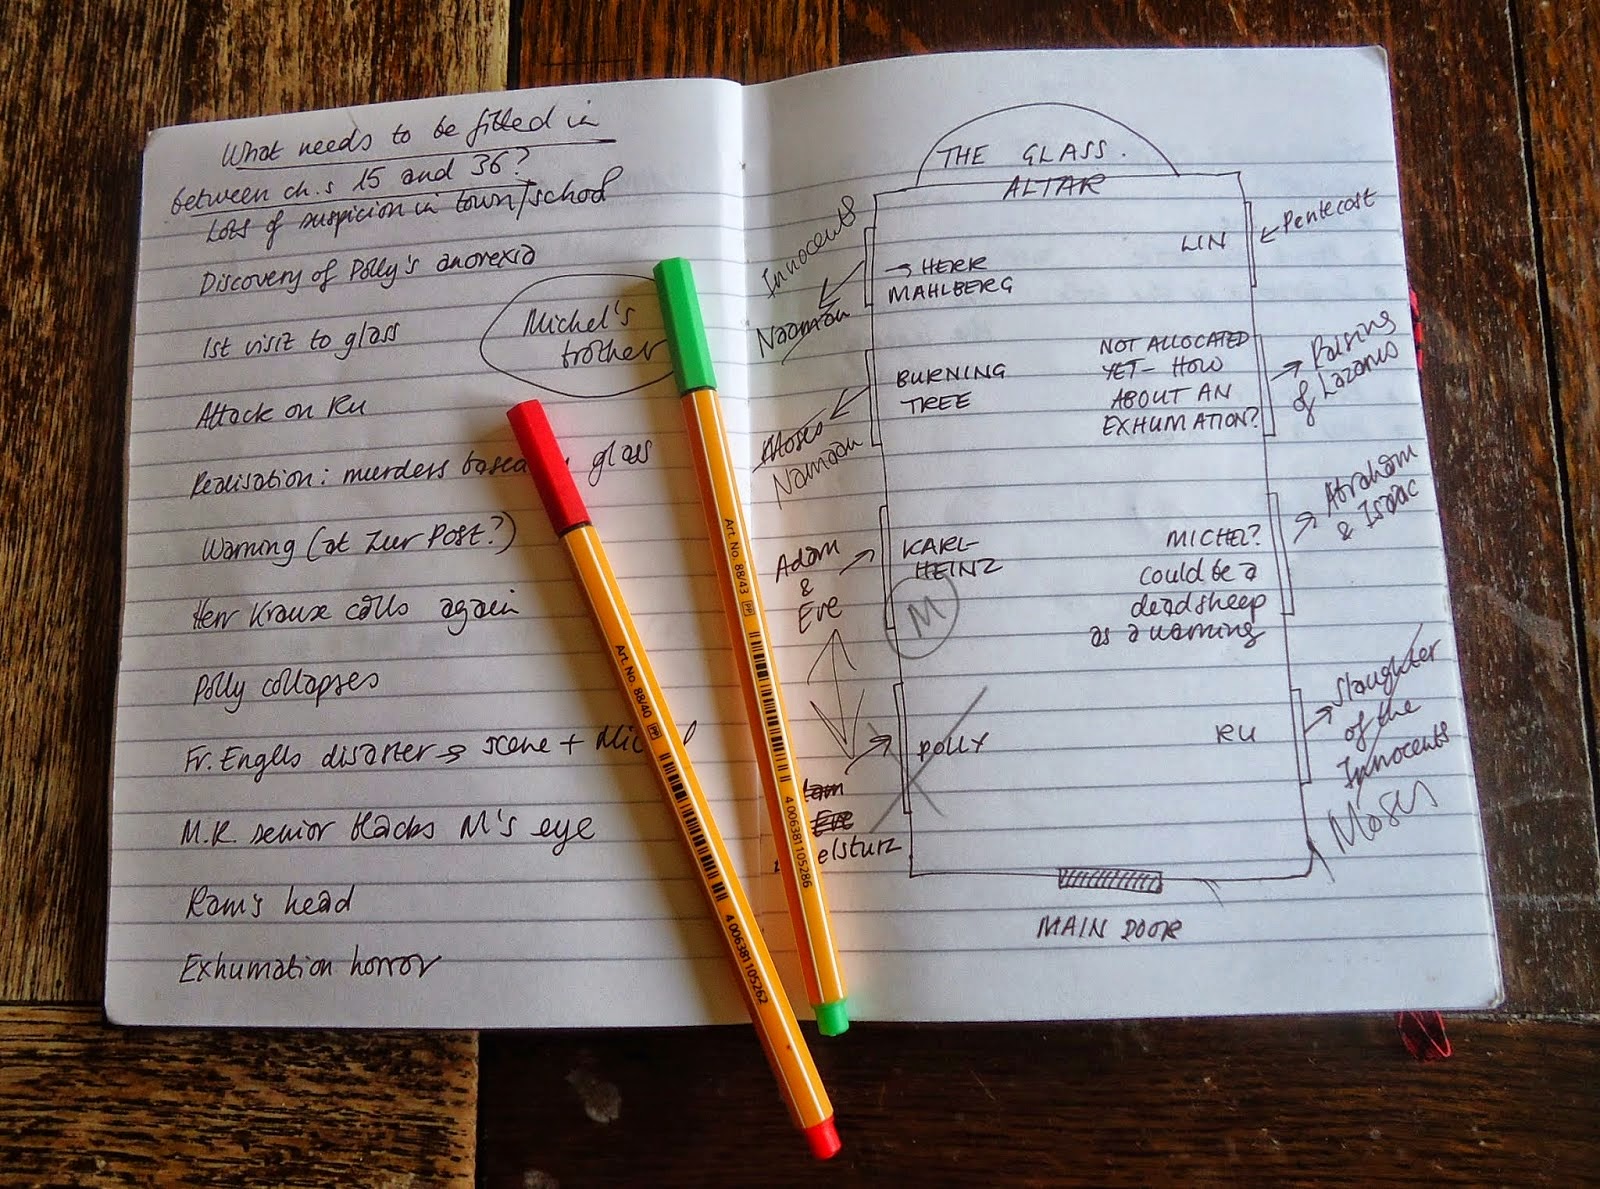 What needs to be filled in
between ch.s 15 and 36?
Lots of suspicion in town/school
Discovery of Polly's anorexia
1st visit to glass
Michel's
brother
Attack on Ru
Realisation: murders based glass
Warning (at Zur Post?)
Herr Kraux calls again
Polly collapses
Fr. Engels disaster → scene +
M.R. senior blacks M's eye
Ram's head
Exhumation horror
Art. No. 88/40 PP
4 006381 105262
Art. No. 88/43 PP
4 006381 105286
THE GLASS.
ALTAR
Innocents
Naaman
→ HERR
MAHLBERG
LIN
Pentecost
BURNING
TREE
Moses
Naaman
NOT ALLOCATED
YET - HOW
ABOUT AN
EXHUMATION?
Raising
of Lazarus
Adam
&
Eve
KARL-
HEINZ
M
MICHEL?
could be a
dead sheep
as a warning
Abraham
& Isaac
POLLY
Eve
elsturz
RU
Slaughter
of the
Innocents
Moses
MAIN DOOR